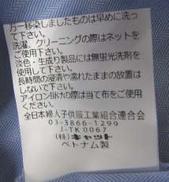 万一移染しましたものは早めに洗っ
て下さい。
洗濯、クリーニングの際はネットを
ご使用下さい。
淡色・生成り製品には無蛍光洗剤を
使用して下さい。
長時間の浸漬や濡れたままの放置は
しないで下さい。
アイロン掛けの際は当て布をご使用
下さい。
全日本婦人子供服工業組合連合会
03-3866-1299
J-TK0067
(株)
ベトナム製